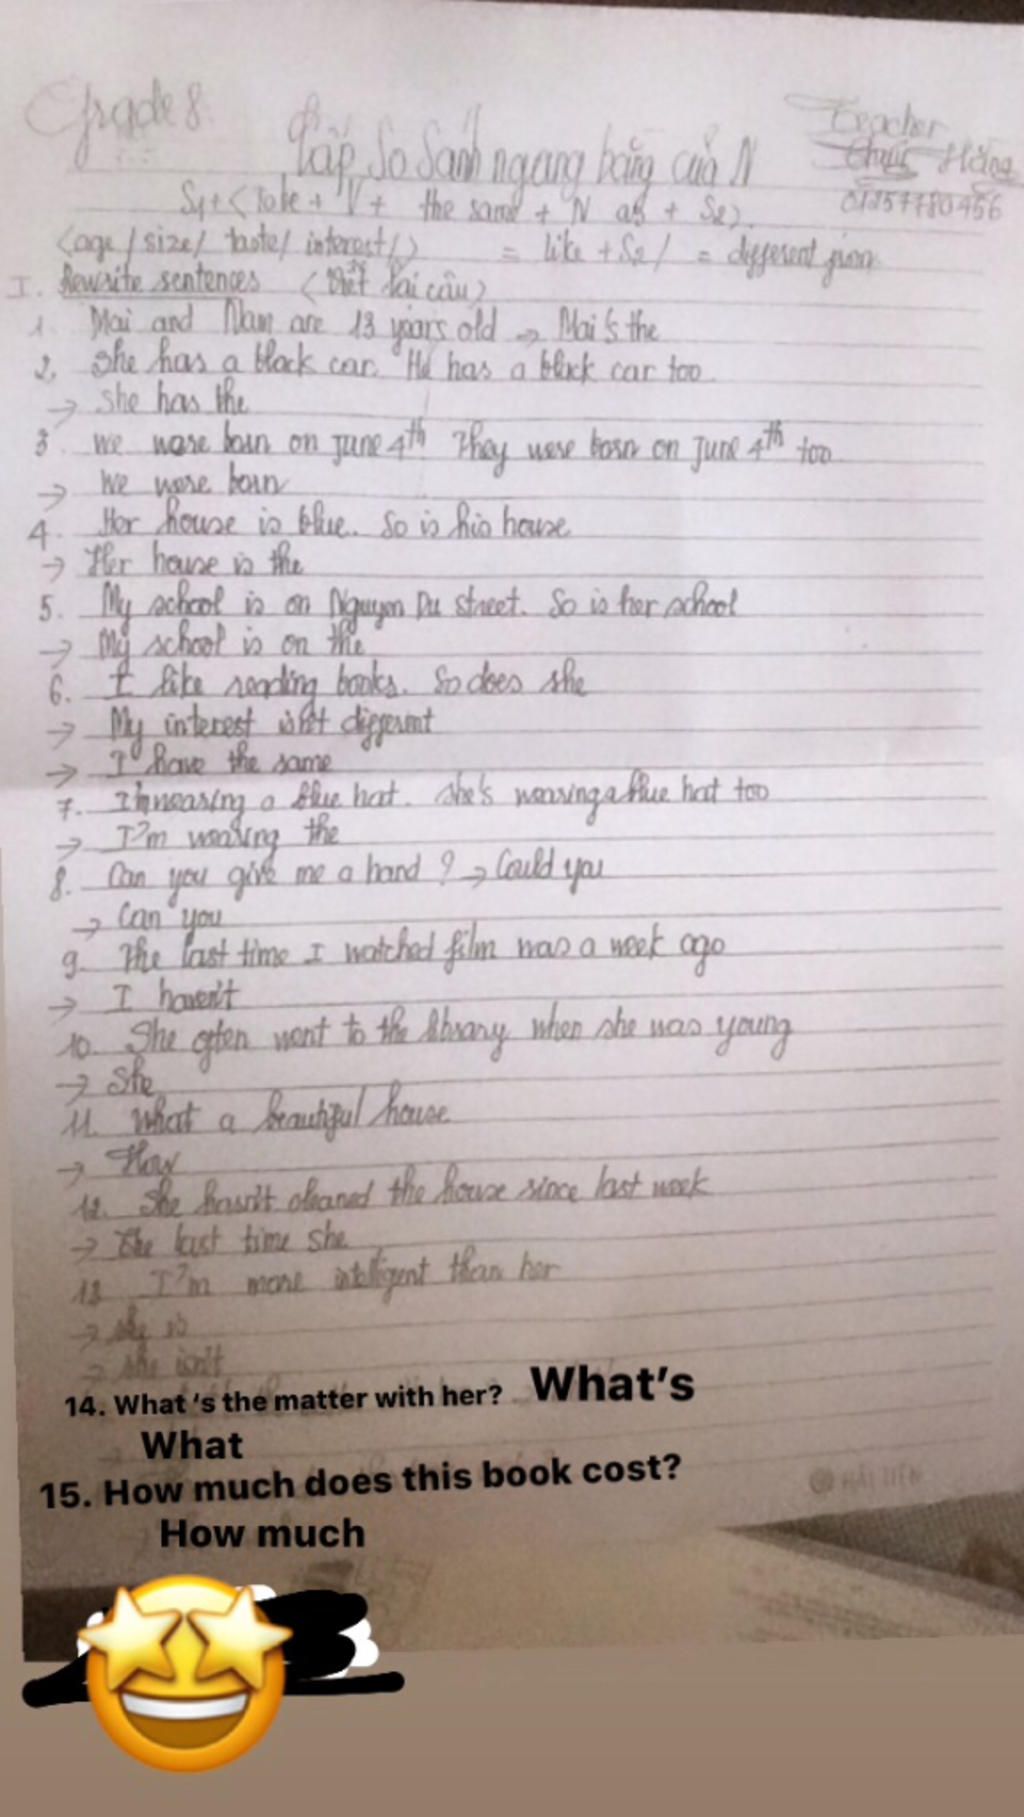 Grade 8
Cấp So Sánh ngang bằng của N
Teacher
Hằng
S1 + <tobe + V + the same + N as + S2>
<age / size / taste / interest / > = like + S2 / = different from
I. Rewrite sentences (Viết lại câu)
1. Mai and Nam are 13 years old → Mai's the
2. She has a black car. He has a black car too
→ She has the
3. We were born on June 4th They were born on June 4th too
→ We were born
4. Her house is blue. So is his house
→ Her house is the
5. My school is on Nguyen Du street. So is her school
→ My school is on the
6. I like reading books. So does she
→ My interest isn't different
→ I have the same
7. I'm wearing a blue hat. She's wearing a blue hat too
→ I'm wearing the
8. Can you give me a hand? → Could you
→ Can you
9. The last time I watched film was a week ago
→ I haven't
10. She often went to the library when she was young
→ She
11. What a beautiful house
→ How
12. She hasn't cleaned the house since last week
→ The last time she
13 I'm more intelligent than her
→ She is
→ She isn't
14. What 's the matter with her? What's
What
15. How much does this book cost?
How much
HẢI TIẾN